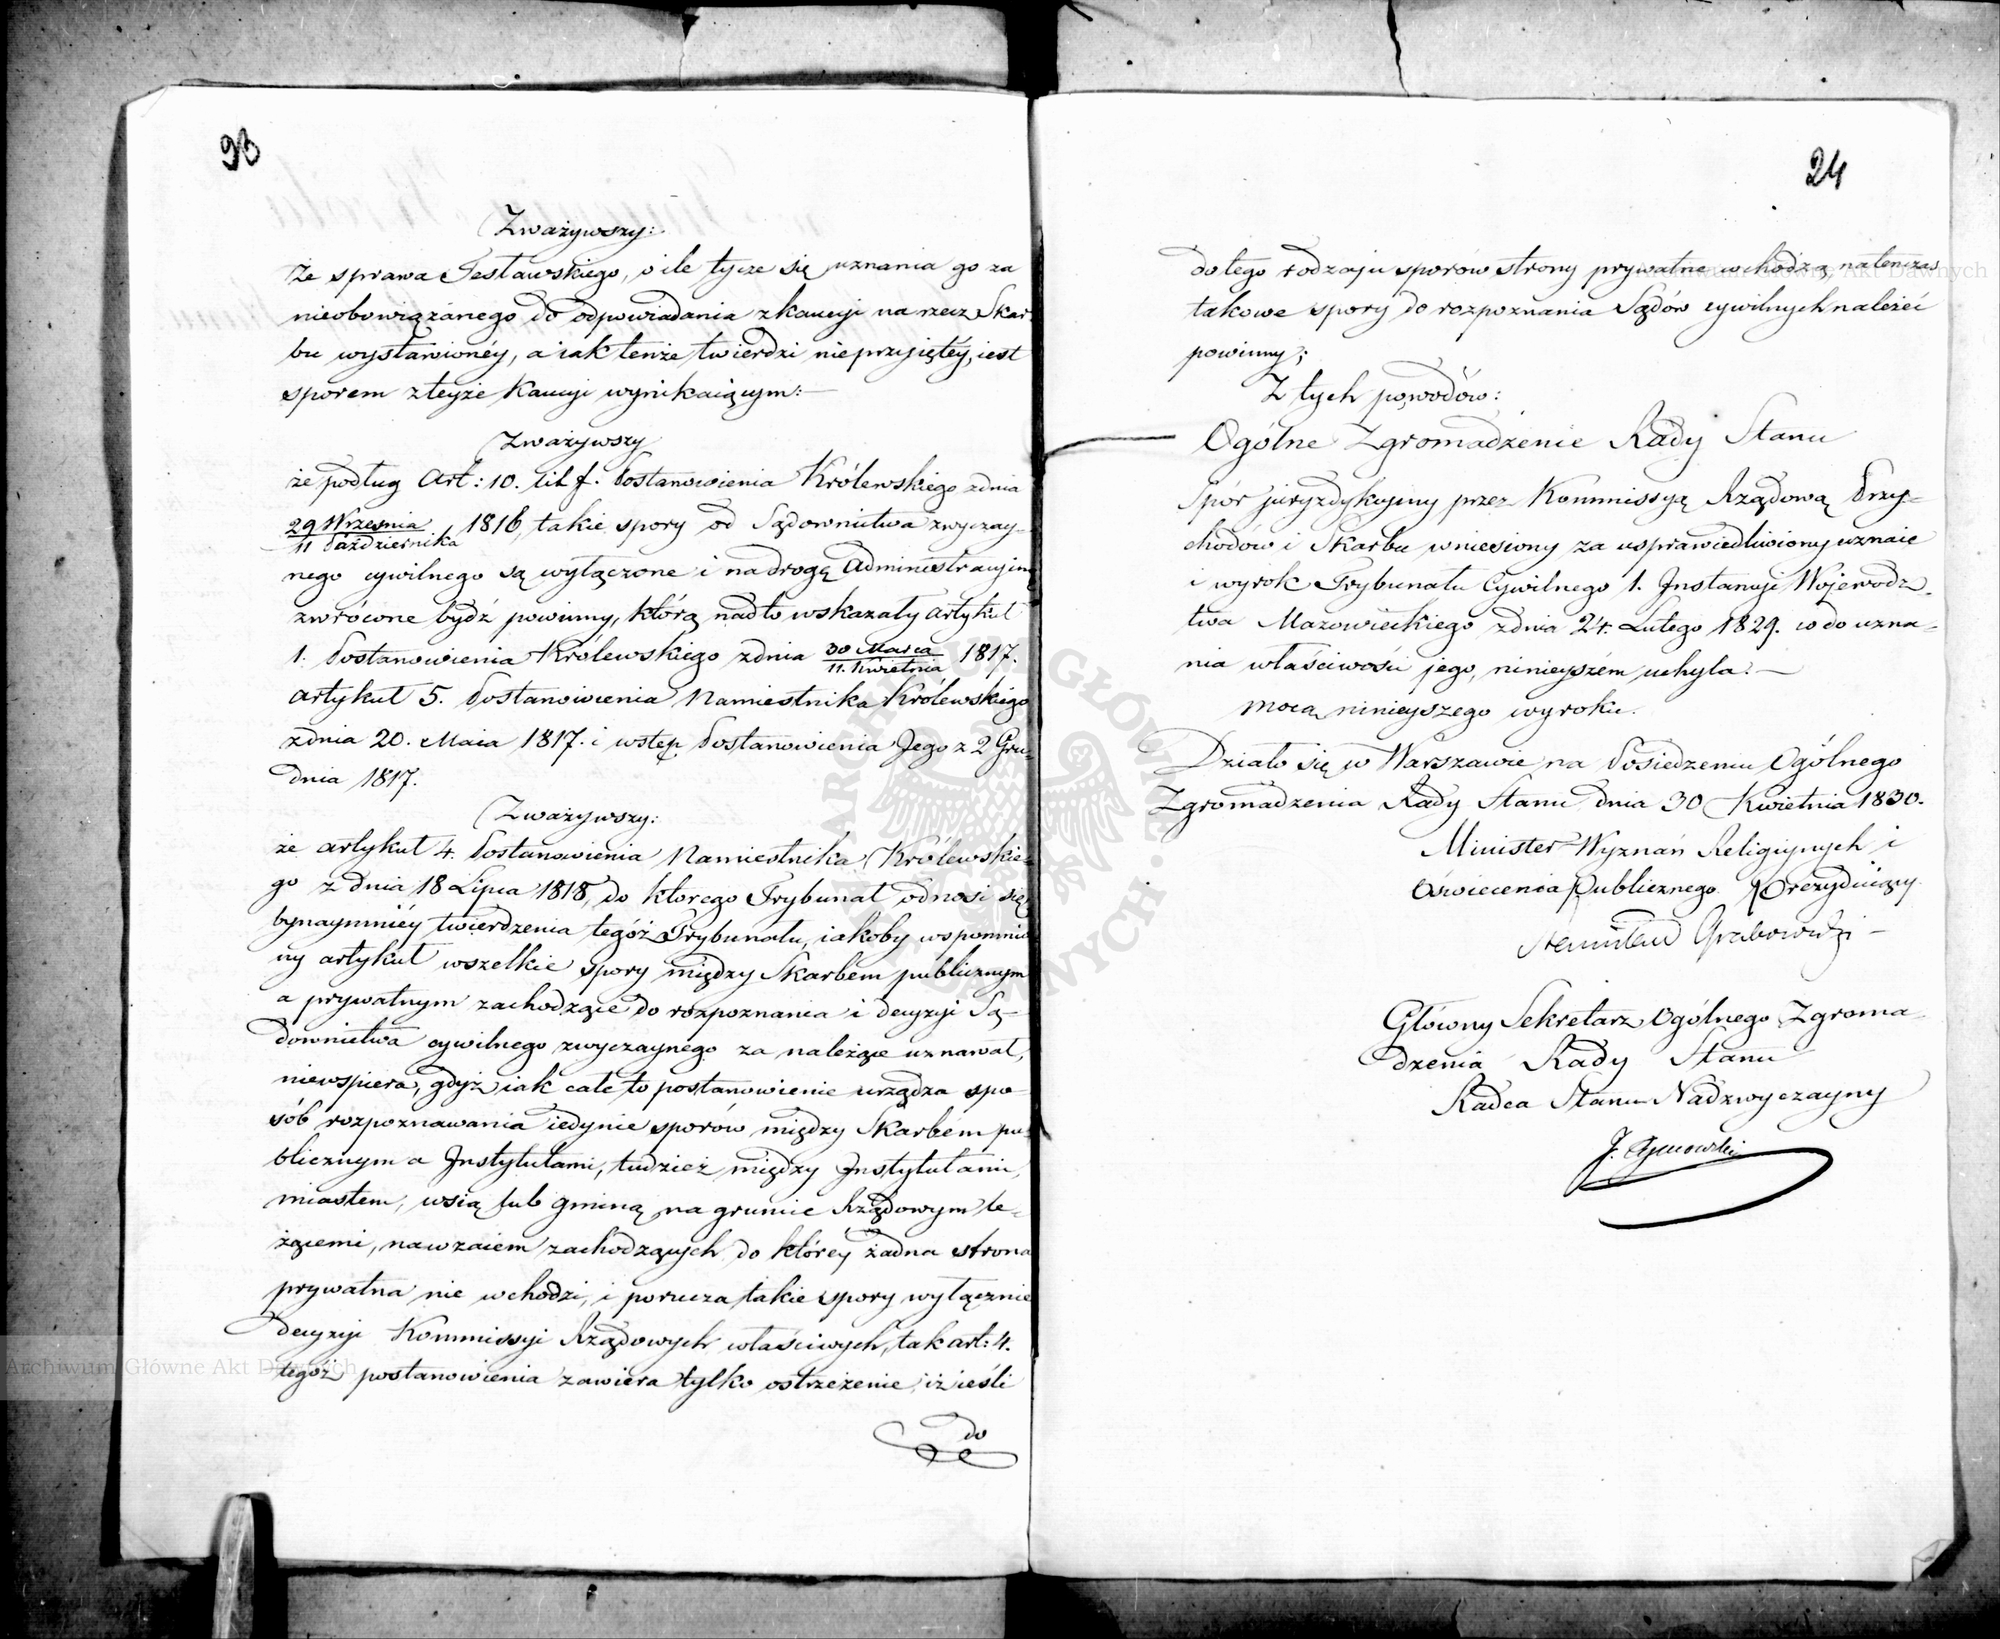 Zważywszy:
że sprawa Testawskiego, o ile tycze się uznania go za
nieobowiązanego do odpowiadania z kaucyi na rzecz Skar-
bu wystawionéy, a iak tenże twierdzi nieprzyiętéy, iest
sporem z teyże Kaucyi wynikaiącym: —
Zważywszy
że podług Art: 10. lit f. Postanowienia Królewskiego z dnia
29 Września / 11 Października 1816, takie spory od Sądownictwa zwyczay-
nego cywilnego są wyłączone i na drogę Administracyiną
zwrócone bydź powinny, którą nadto wskazały Artykuł
1. Postanowienia Królewskiego z dnia 30 Marca / 11. Kwietnia 1817.
Artykuł 5. Postanowienia Namiestnika Królewskiego
z dnia 20. Maia 1817. i wstęp Postanowienia Jego z 2 Gru-
dnia 1817.
Zważywszy:
że artykuł 4. Postanowienia Namiestnika Królewskie-
go z dnia 18 Lipca 1818, do którego Trybunał odnosi się
bynaymniéy twierdzenia tegóż Trybunału, iakoby wspomnio
ny artykuł wszelkie spory między Skarbem publicznym
a prywatnym zachodzące do rozpoznania i decyzyi Są-
downictwa cywilnego zwyczaynego za należące uznawał,
niewspiera, gdyż iak całe to postanowienie urządza spo-
sób rozpoznawania iedynie sporów między Skarbem pu-
blicznym a Instytutami, tudzież między Instytutami,
miastem, wsią lub gminą na gruncie Rządowym le-
żącemi, nawzaiem zachodzących do któréy żadna strona
prywatna nie wchodzi, i porucza takie spory wyłącznie
decyzyi Kommissyi Rządowych właściwych, tak art: 4.
tegoż postanowienia zawiera tylko ostrzeżenie, iż ieśli
do
24
do tego rodzaju sporów strony prywatne wchodzą, natenczas
takowe spory do rozpoznania Sądów cywilnych należeć
powinny;
Z tych powodów:
Ogólne Zgromadzenie Rady Stanu
Spór juryzdykcyiny przez Kommissyą Rządową Przy-
chodów i Skarbu wniesiony za usprawiedliwiony uznaie
i wyrok Trybunału Cywilnego 1. Instancyi Wojewodz-
twa Mazowieckiego z dnia 24. Lutego 1829. co do uzna-
nia właściwości jego, ninieyszém uchyla. —
mocą ninieyszego wyroku.
Działo się w Warszawie na Posiedzeniu Ogólnego
Zgromadzenia Rady Stanu dnia 30 Kwietnia 1830.
Minister Wyznań Religiynych i
Oświecenia Publicznego Prezyduiący
Stanisław Grabowski
Główny Sekretarz Ogólnego Zgroma-
dzenia Rady Stanu
Radca Stanu Nadzwyczayny
Archiwum Główne Akt Dawnych
Archiwum Główne Akt Dawnych